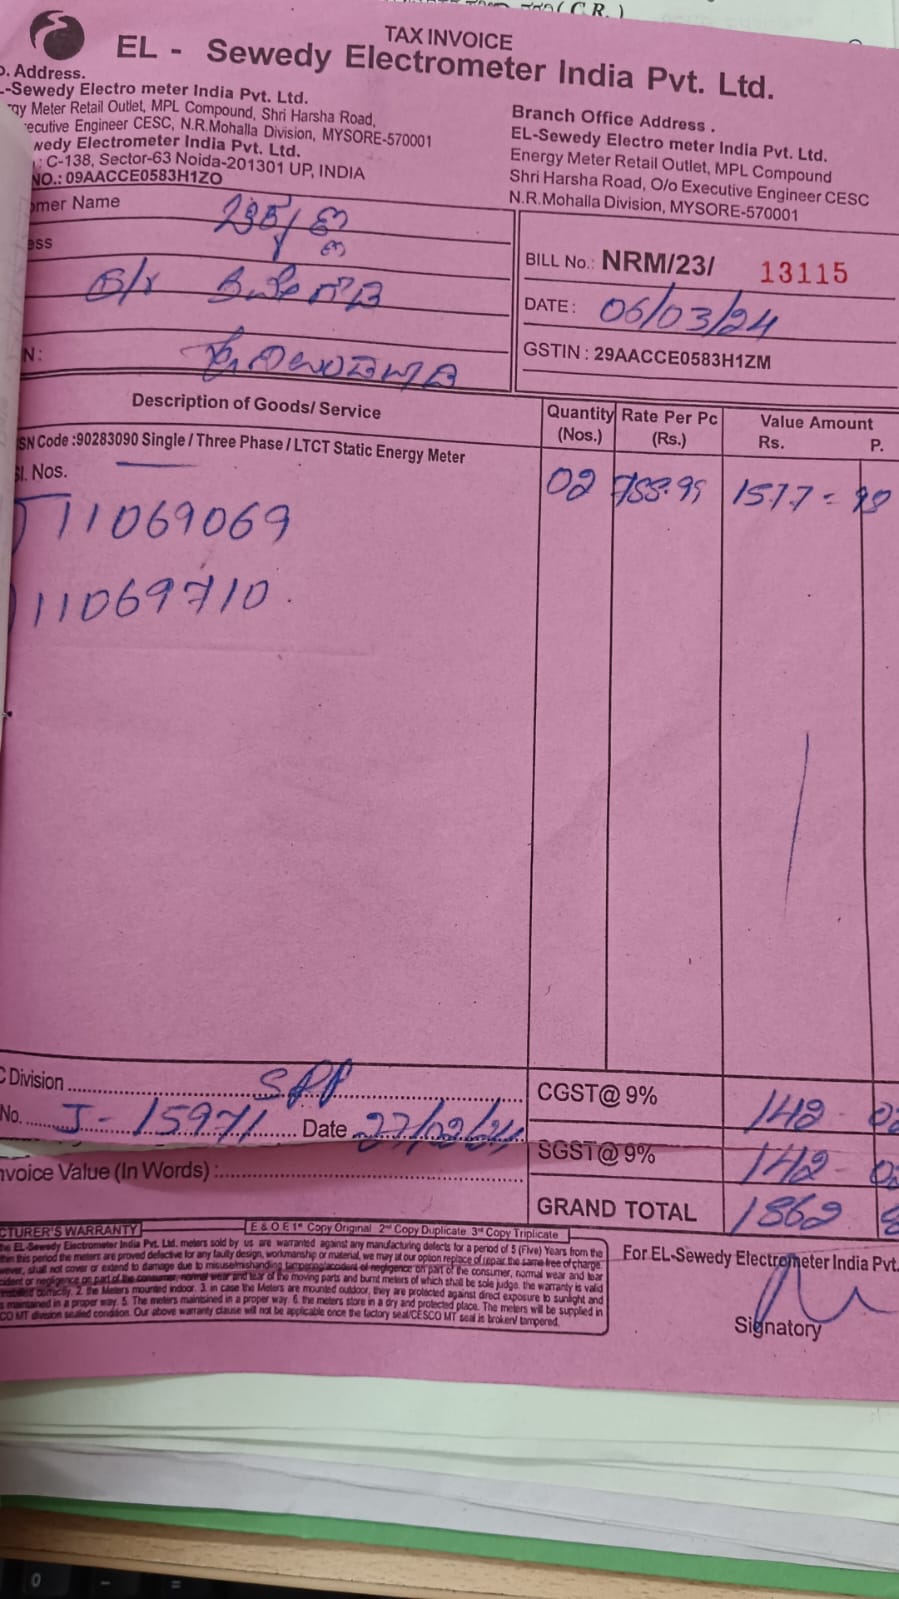 ದರ ( C.R. )
TAX INVOICE
EL - Sewedy Electrometer India Pvt. Ltd.
. Address.
-Sewedy Electro meter India Pvt. Ltd.
gy Meter Retail Outlet, MPL Compound, Shri Harsha Road,
ecutive Engineer CESC, N.R.Mohalla Division, MYSORE-570001
wedy Electrometer India Pvt. Ltd.
: C-138, Sector-63 Noida-201301 UP, INDIA
NO.: 09AACCE0583H1ZO
Branch Office Address .
EL-Sewedy Electro meter India Pvt. Ltd.
Energy Meter Retail Outlet, MPL Compound
Shri Harsha Road, O/o Executive Engineer CESC
N.R.Mohalla Division, MYSORE-570001
omer Name
ess
N :
BILL No.: NRM/23/ 13115
DATE : 06/03/24
GSTIN : 29AACCE0583H1ZM
Description of Goods/ Service Quantity (Nos.) Rate Per Pc (Rs.) Value Amount Rs. P.
SN Code :90283090 Single / Three Phase / LTCT Static Energy Meter
Sl. Nos. 02 788.99 1577=98
11069069
11069710
C Division SRP
No. J-15971 Date 27/02/24
CGST@ 9% 142-02
SGST@ 9% 142-02
nvoice Value (In Words) :
GRAND TOTAL 1862
CTURER'S WARRANTY E & O E 1st Copy Original 2nd Copy Duplicate 3rd Copy Triplicate
the EL-Sewedy Electrometer India Pvt. Ltd. meters sold by us are warranted against any manufacturing defects for a period of 5 (Five) Years from the
then this period the meters are proved defective for any faulty design, workmanship or material, we may at our option replace of repair the same free of charge.
wever, shall not cover or extend to damage due to misuse/mishandling tampering/accident of negligence on part of the consumer, normal wear and tear
cident or negligence on part of the consumer, normal wear and tear of the moving parts and burnt meters of which shall be sole judge. the warranty is valid
installed correctly. 2. the Meters mounted indoor. 3. in case the Meters are mounted outdoor, they are protected against direct exposure to sunlight and
s maintained in a proper way. 5. The meters maintained in a proper way. 6. the meters store in a dry and protected place. The meters will be supplied in
CO MT division sealed condition. Our above warranty clause will not be applicable once the factory seal/CESCO MT seal is broken/ tampered.
For EL-Sewedy Electrometer India Pvt.
Signatory
0 - =